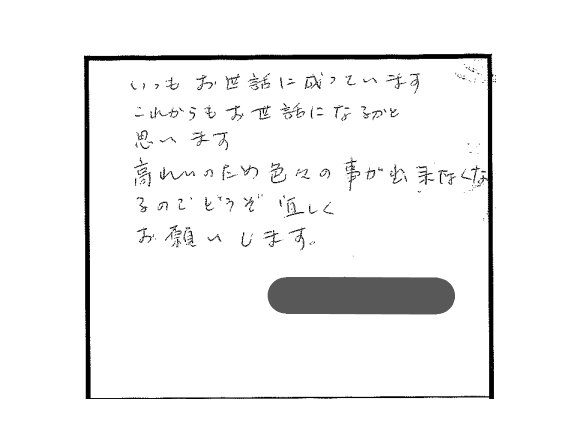 いつもお世話に成っています
これからもお世話になるかと
思います
高れいのため色々の事が出来なくな
るのでどうぞ宜しく
お願いします。